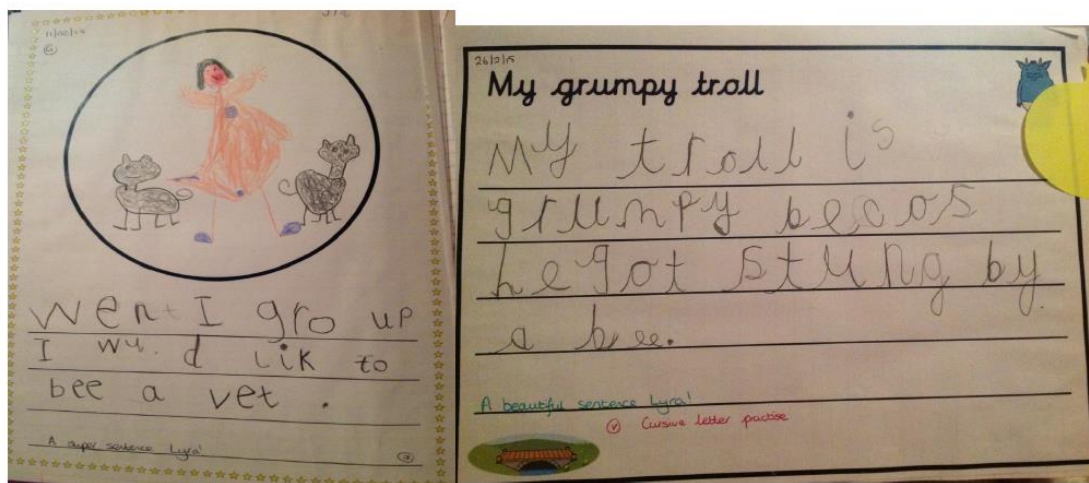 11/02/15
went I gro up
I wu. d lik to
bee a vet .
A super sentence Lyra!
26/2/15
My grumpy troll
My troll is
grumpy becos
he got stung by
a bee.
A beautiful sentence Lyra!
Cursive letter practise